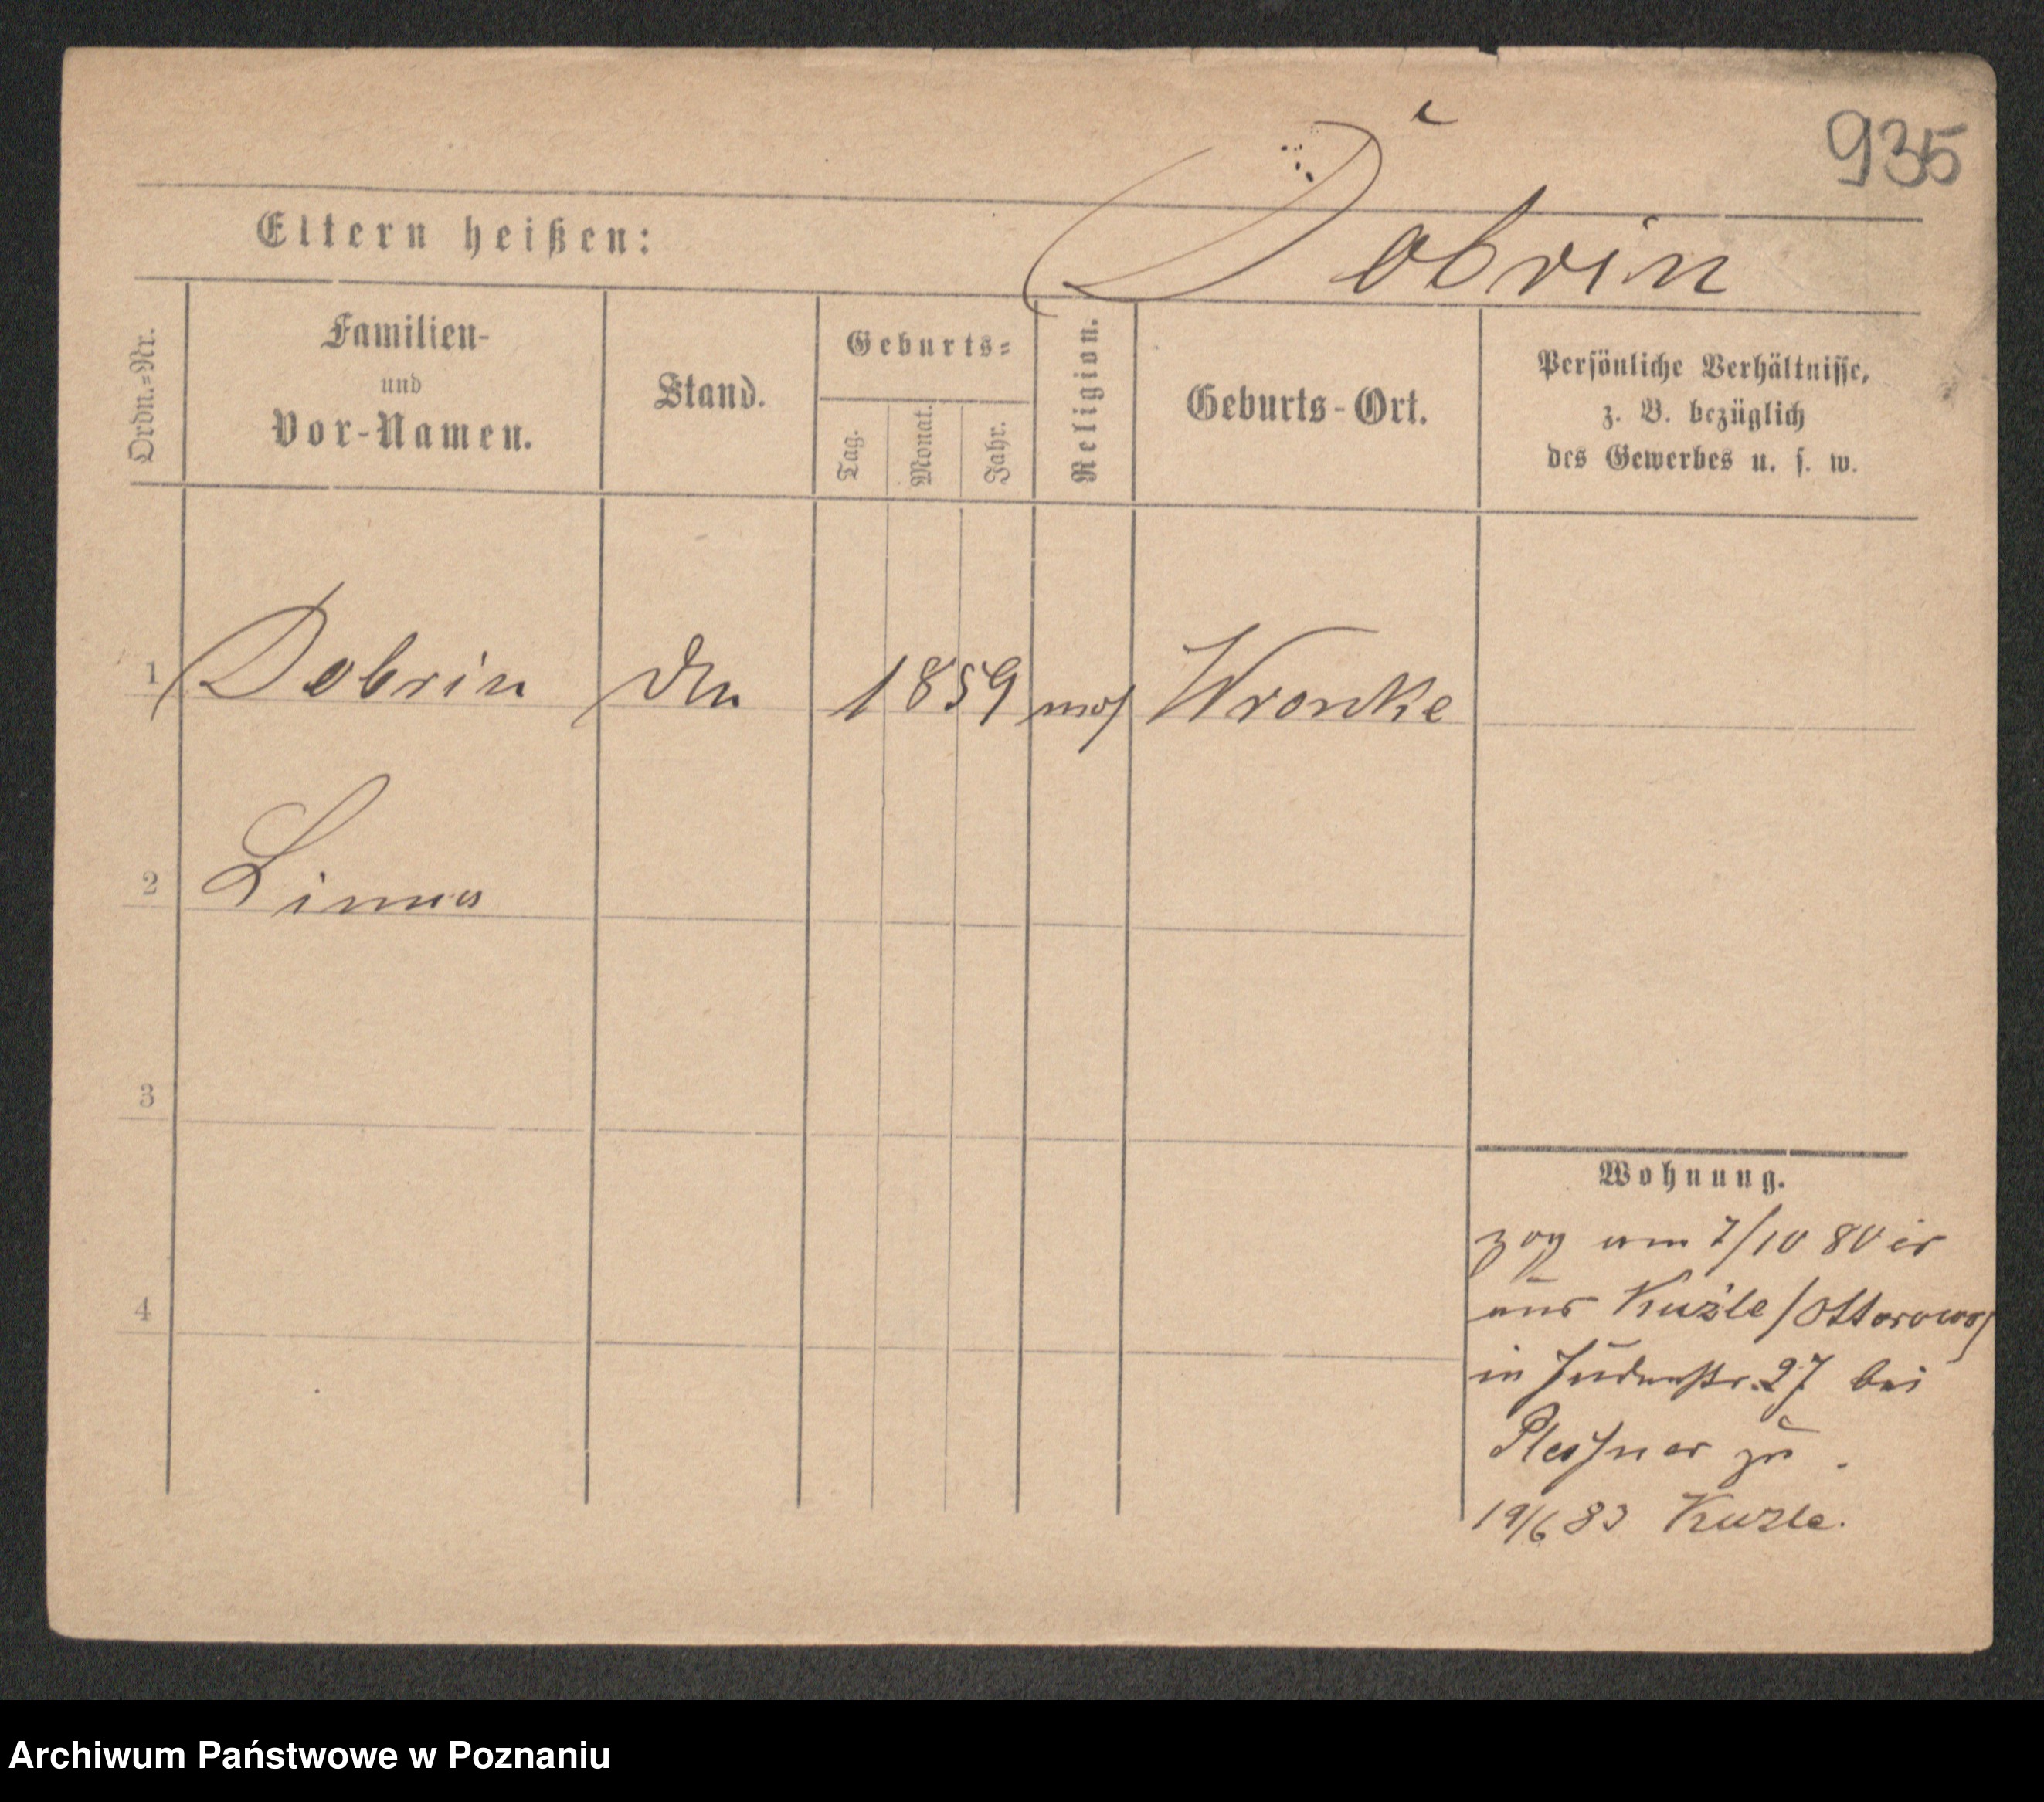 935
Döbrin
Eltern heißen:
Ordn.-Nr.
Familien-
und
Vor-Namen.
Stand.
Geburts-
Tag.
Monat.
Jahr.
Religion.
Geburts-Ort.
Persönliche Verhältnisse,
z. B. bezüglich
des Gewerbes u. s. w.
1 Dobrin 1859 mos Wronke
2
3
4
Wohnung.
zog am 7/10 80 er
aus Kuźle / Ottorowo /
in Judenstr. 27 bei
Plessner zu.
19/6 83 Kuzle.
Archiwum Państwowe w Poznaniu